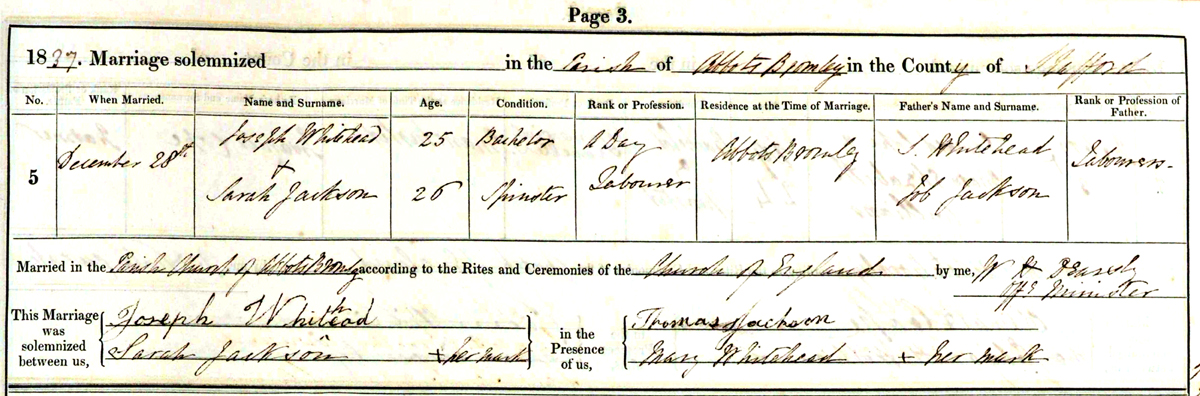 Page 3.
1837. Marriage solemnized in the Parish of Abbots Bromley in the County of Stafford
No. When Married. Name and Surname. Age. Condition. Rank or Profession. Residence at the Time of Marriage. Father's Name and Surname. Rank or Profession of Father.
5 December 28th Joseph Whitehead 25 Bachelor A Day Labourer Abbots Bromley J. Whitehead Labourers
+
Sarah Jackson 26 Spinster Job Jackson
Married in the Parish Church of Abbots Bromley according to the Rites and Ceremonies of the Church of England by me, W
Offg Minister
This Marriage was solemnized between us, Joseph Whitehead in the Presence of us, Thomas Jackson
Sarah Jackson + her mark Mary Whitehead + her mark